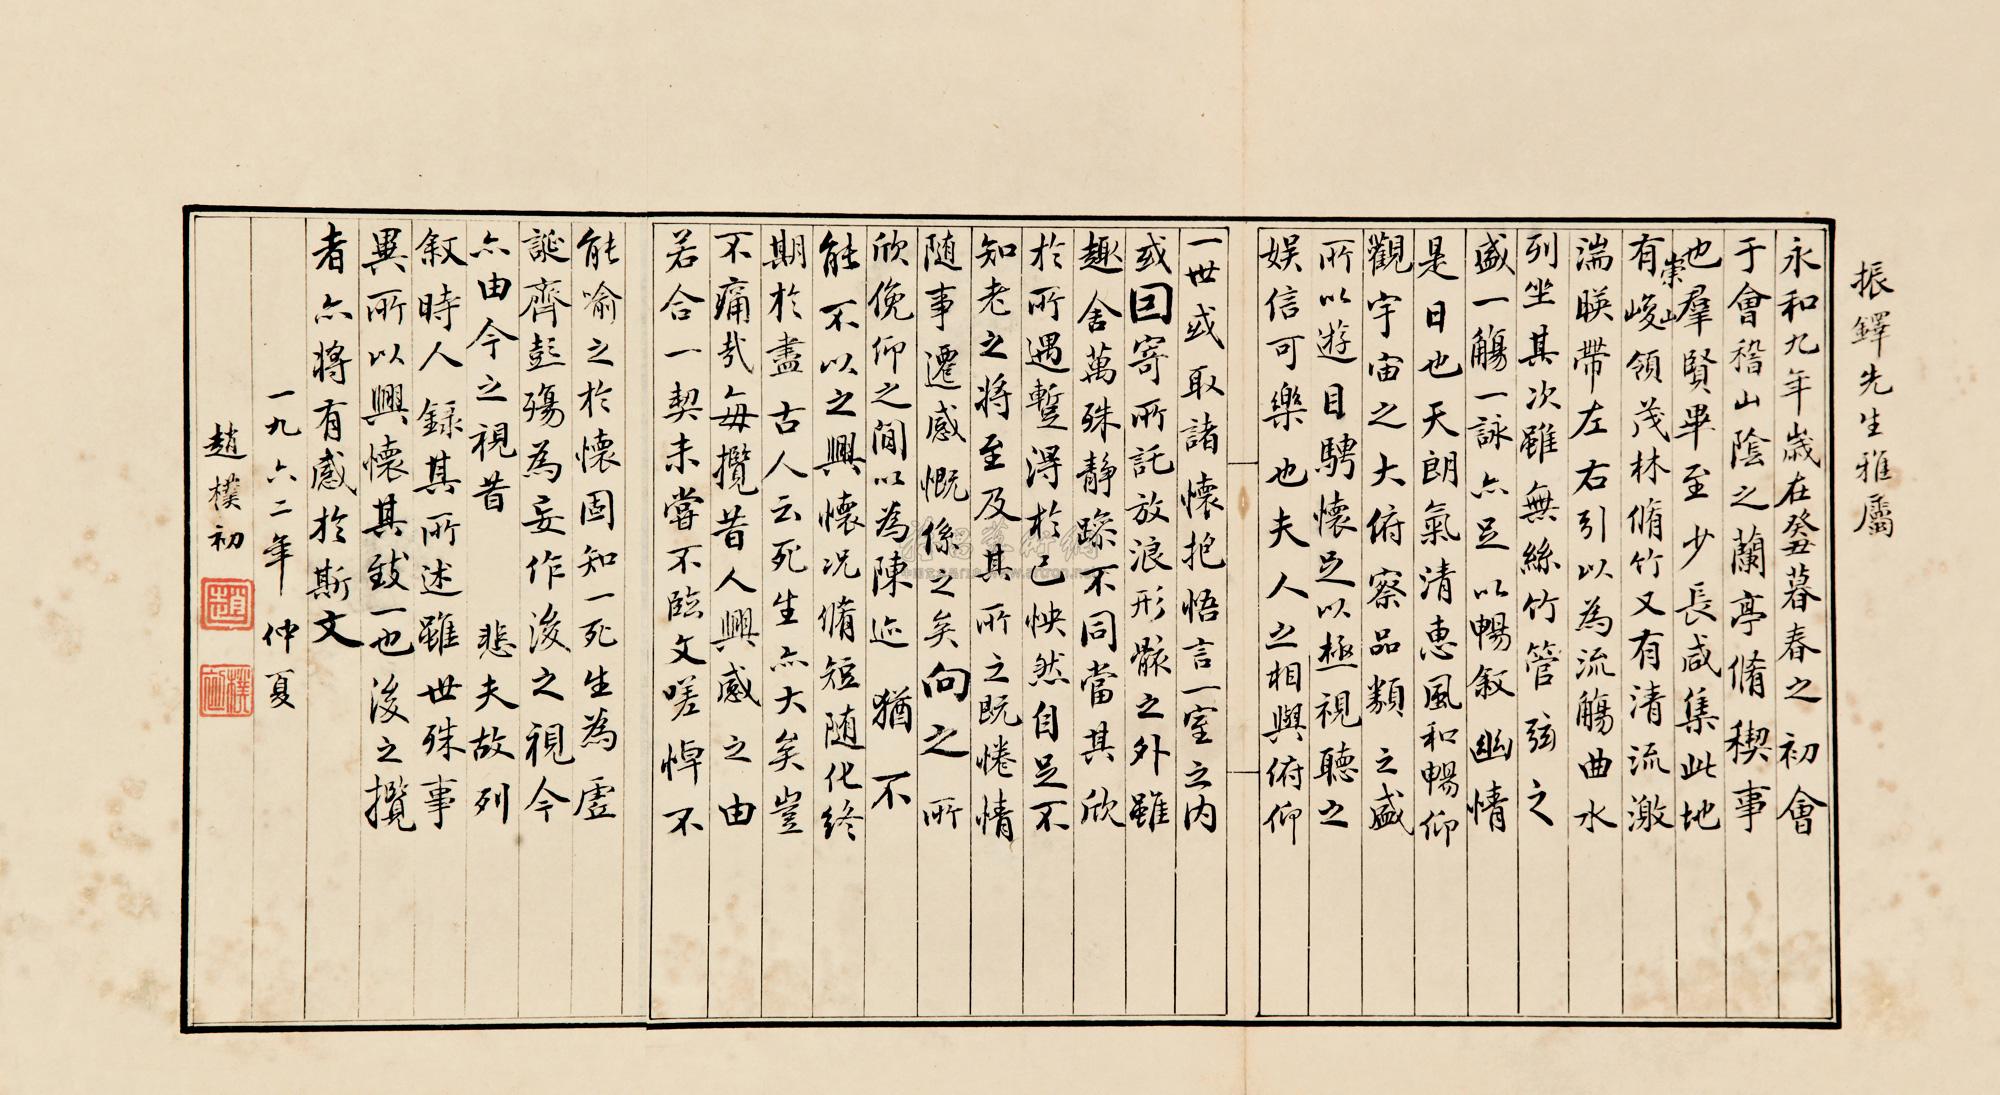 振鐸先生雅屬
永和九年歲在癸丑暮春之初會
于會稽山陰之蘭亭脩稧事
也羣賢畢至少長咸集此地
有崇山峻領茂林脩竹又有清流激
湍暎帶左右引以為流觴曲水
列坐其次雖無絲竹管弦之
盛一觴一詠亦足以暢叙幽情
是日也天朗氣清惠風和暢仰
觀宇宙之大俯察品類之盛
所以遊目騁懷足以極視聽之
娛信可樂也夫人之相與俯仰
一世或取諸懷抱悟言一室之内
或因寄所託放浪形骸之外雖
趣舍萬殊静躁不同當其欣
於所遇蹔得於己怏然自足不
知老之將至及其所之既惓情
随事遷感慨係之矣向之所
欣俛仰之間以為陳迹猶不
能不以之興懷況脩短随化終
期於盡古人云死生亦大矣豈
不痛哉每攬昔人興感之由
若合一契未嘗不臨文嗟悼不
能喻之於懷固知一死生為虛
誕齊彭殤為妄作後之視今
亦由今之視昔悲夫故列
叙時人録其所述雖世殊事
異所以興懷其致一也後之攬
者亦將有感於斯文
一九六二年仲夏
趙樸初
趙
樸初